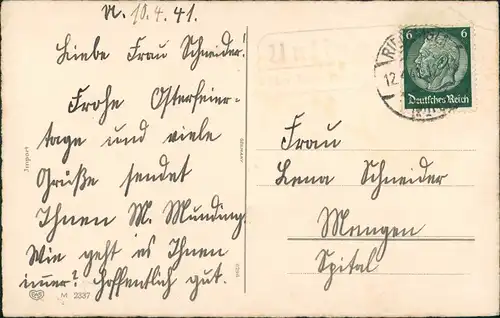 U. 10.4.41.
Liebe Frau Schneider!
Frohe Osterfeier-
tage und viele
Grüße sendet
Ihnen M. Munding.
Wie geht es Ihnen
immer? Hoffentlich gut.
Import
GERMANY
M 2337
6 6
Deutsches Reich
12.4.
Frau
Lena Schneider
Mengen
Spital